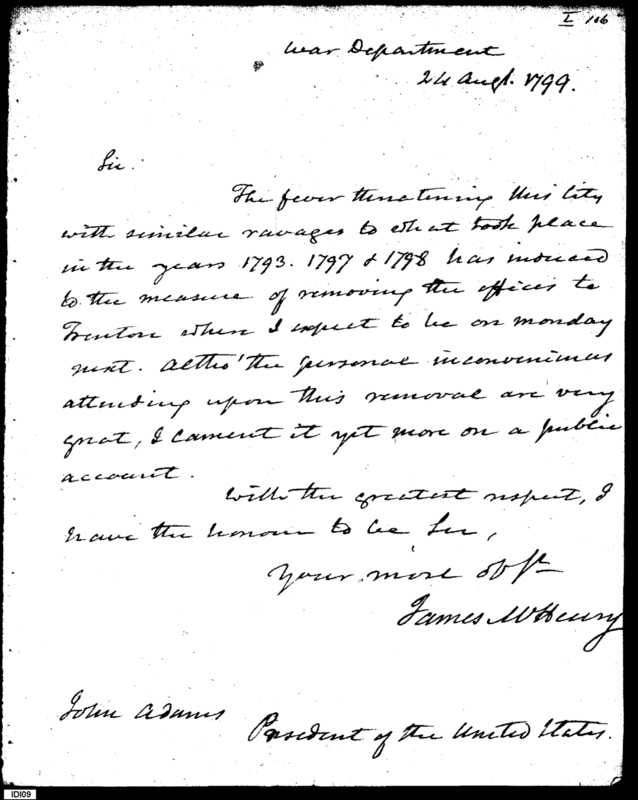 I 116
War Department
24 Augt. 1799.
Sir.
The fever threatening this City
with similar ravages to what took place
in the years 1793. 1797 & 1798 has induced
to the measure of removing the offices to
Trenton where I expect to be on monday
next. Altho' the personal inconveniences
attending upon this removal are very
great, I lament it yet more on a public
account.
With the greatest respect, I
have the honour to be Sir,
Your most obSt
James McHenry
John Adams
President of the United States.
IDI09